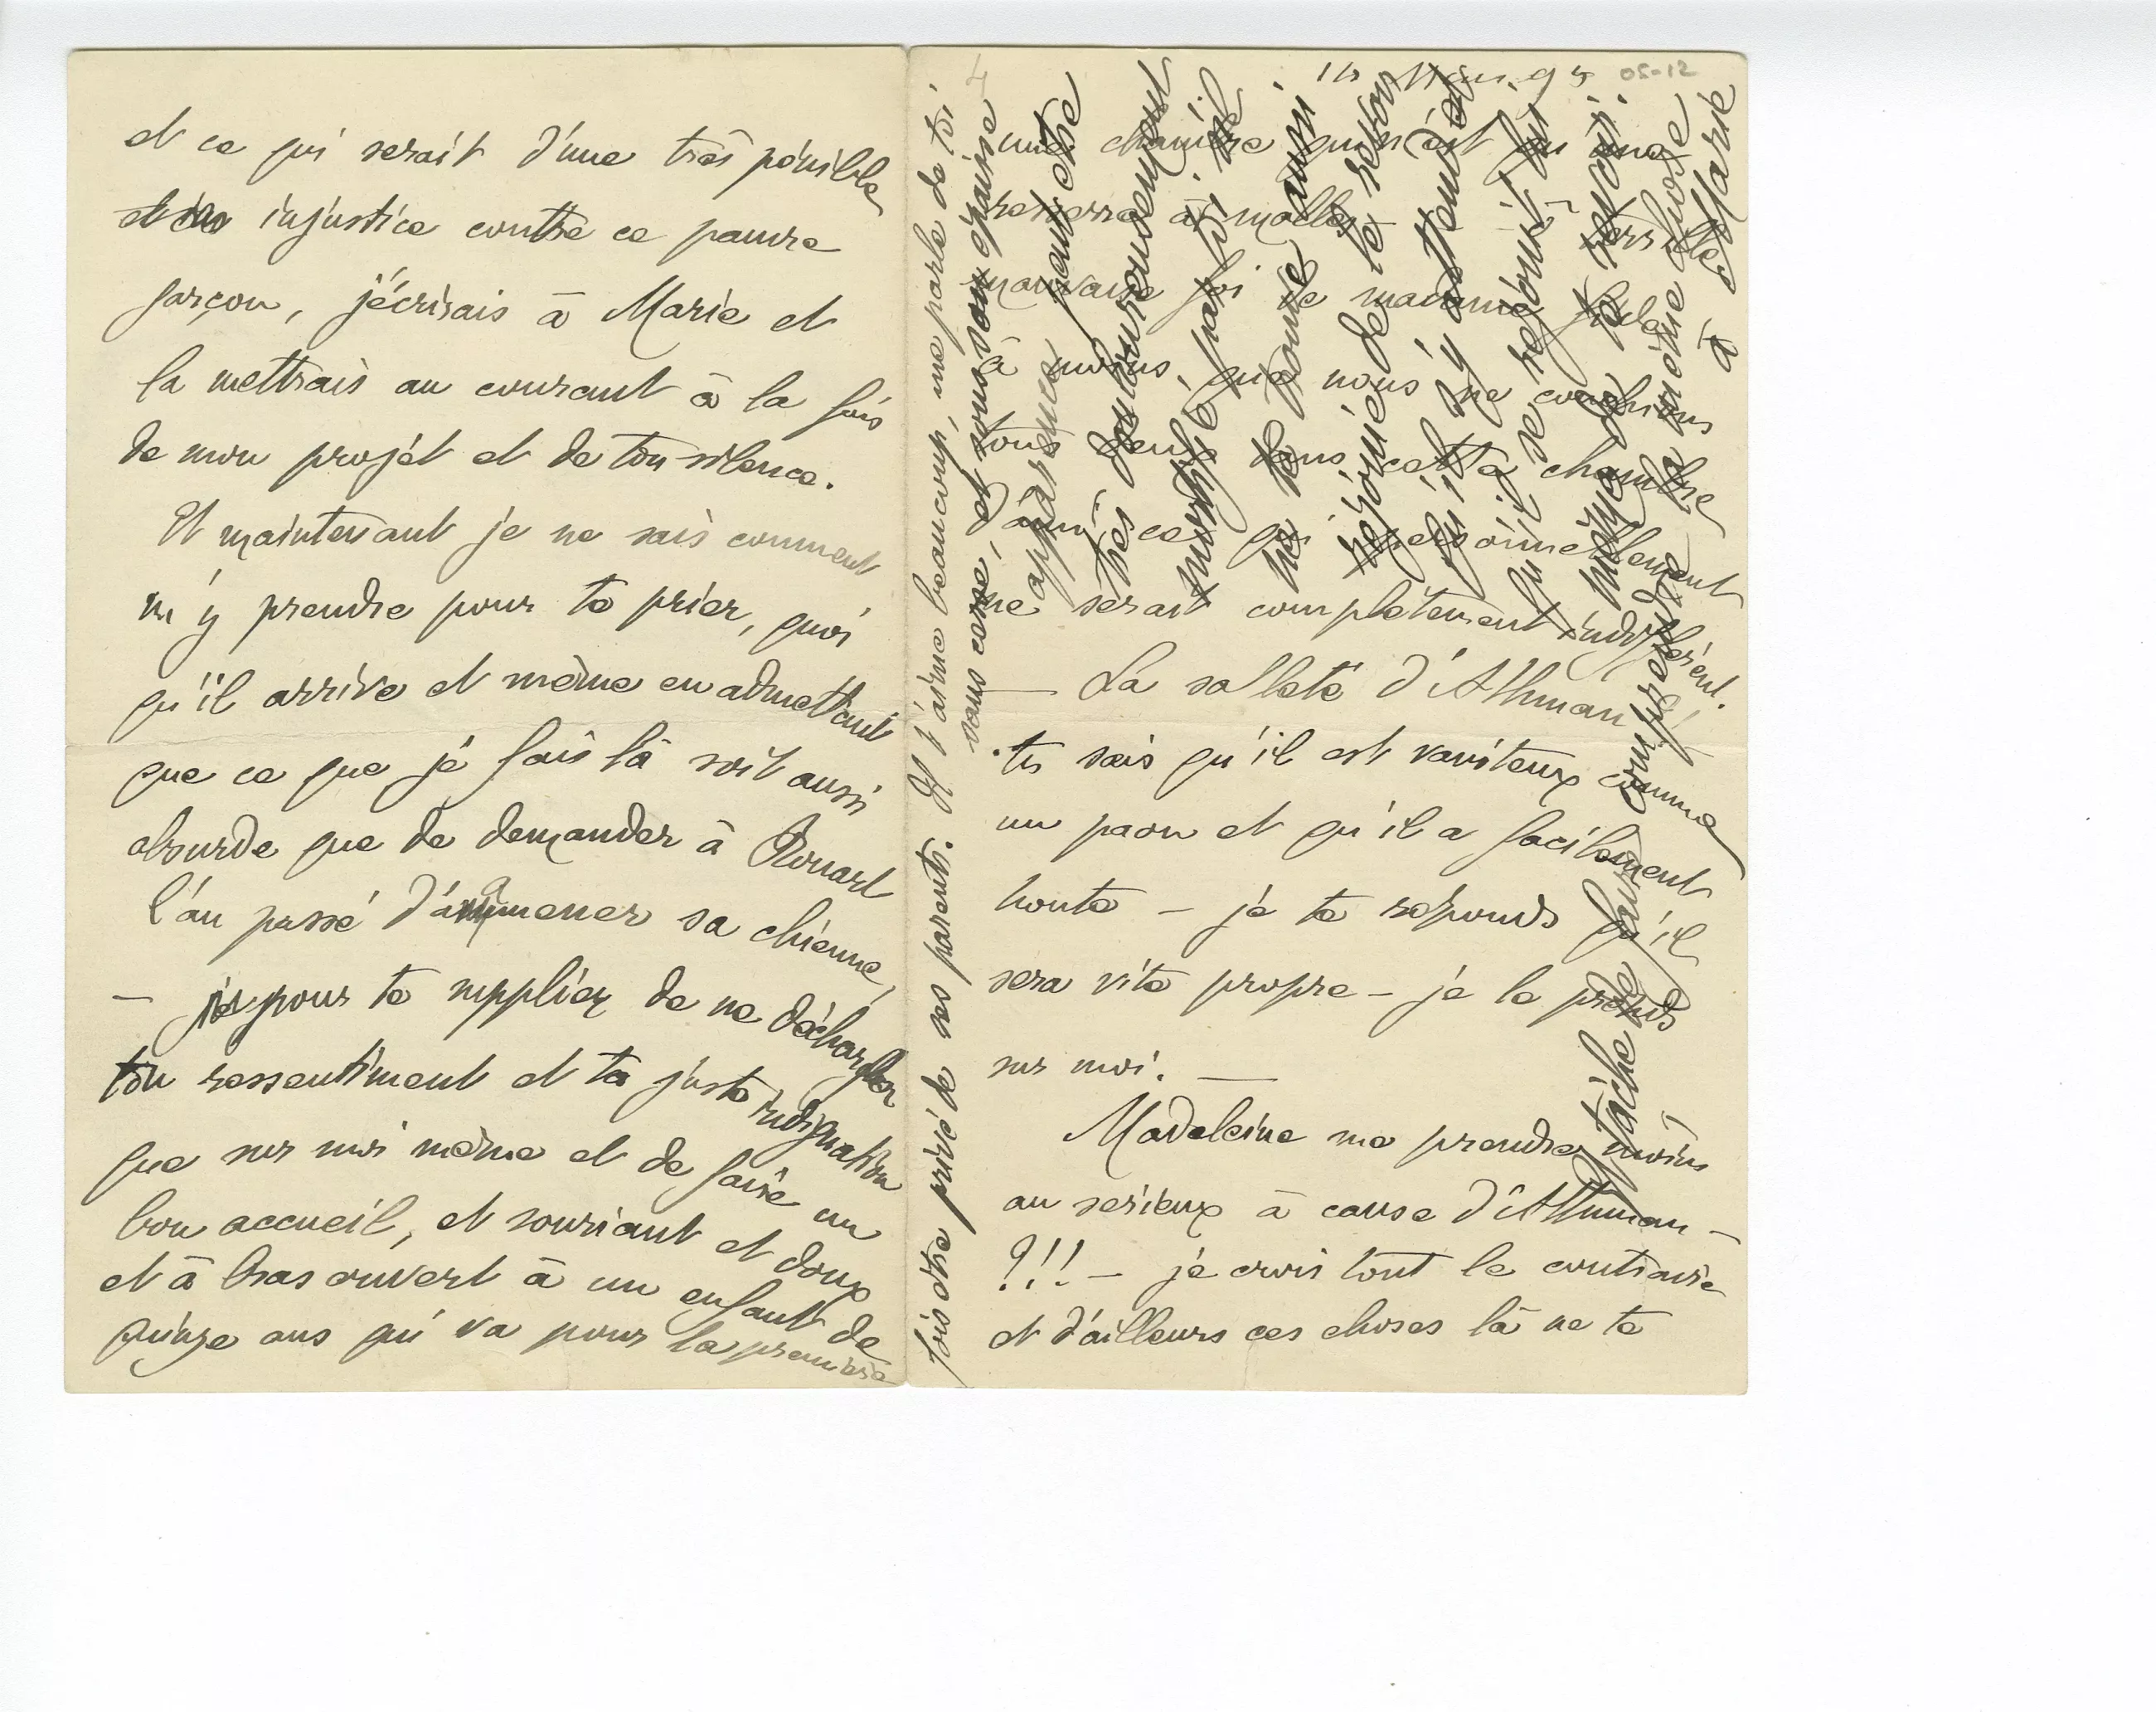 et ce qui serait d'une très pénible
et injustice contre ce pauvre
garçon, j'écrirais à Marie et
la mettrais au courant à la fois
de mon projet et de ton silence.
Et maintenant je ne sais comment
m'y prendre pour te prier, quoi
qu'il arrive et même en admettant
que ce que je fais là soit aussi
absurde que de demander à Rouart
l'an passé d'ammener sa chienne,
— pour te supplier de ne décharger
ton ressentiment et ta juste indignation
que sur moi même et de faire un
bon accueil, et souriant et doux
et à bras ouvert à un enfant de
quinze ans qui va pour la première
fois être privé de ses parents. Il t'aime beaucoup, me parle de toi
sans cesse, et sous son épaisse
apparence peut être
très douloureusement
par toi s'il
ne te trouve aussi
réjouie de le revoir
qu'il s'y attend et
qu'il se réjouit lui
même de te revoir.
Tâche de faire comprendre la même chose
à Marie
05-12
une chambre qu'ils ont ou une
resserre à malles —
terrible
mauvaise foi de madame Gide
à moins que nous ne couchions
tous deux dans cette chambre
ce qui personnellement
me serait complètement indifférent.
— La saleté d'Athman
tu sais qu'il est vaniteux comme
un paon et qu'il a facilement
honte — je te réponds qu'il
sera vite propre — je le prends
sur moi. —
Madeleine me prendre moins
au serieux à cause d'Athman —
?!! — je crois tout le contraire
et d'ailleurs ces choses là ne te